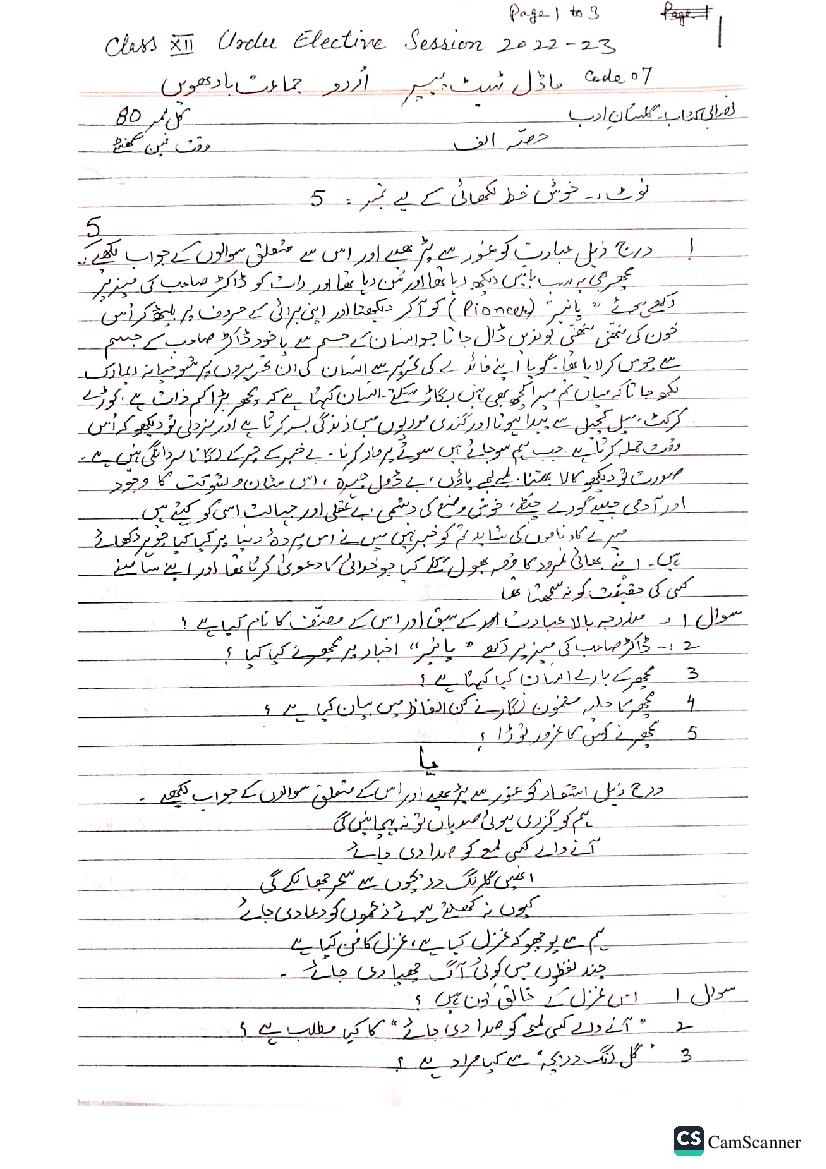 Page 1 to 3
Page 1
1
Class XII Urdu Elective Session 2022-23
ماڈل ٹیسٹ پیپر اُردو جماعت بارھویں Code 07
نصابی کتاب۔ گلستانِ ادب کل نمبر 80
حصّہ الف وقت تین گھنٹے
نوٹ:۔ خوش خط لکھائی کے لیے نمبر: 5
5
1 درج ذیل عبارت کو غور سے پڑھیے اور اس سے متعلق سوالوں کے جواب لکھیے:
مچھر بھی یہ سب باتیں دیکھ رہا تھا اور سُن رہا تھا اور رات کو ڈاکٹر صاحب کی میز پر
رکھے ہوئے "پانیر" (Pioneer) کو آکر دیکھتا اور اپنی برائی کے حروف پر بیٹھ کر اُس
خون کی ننھی ننھی بوندیں ڈال جاتا جو انسان کے جسم سے یا خود ڈاکٹر صاحب کے جسم
سے چوس کر لایا تھا۔ گویا اپنے فائدے کی تحریر سے انسان کی ان تحریروں پر شوخیانہ ریمارک
لکھ جاتا کہ میاں تم میرا کچھ بھی نہیں بگاڑ سکتے۔ انسان کہتا ہے کہ مچھر بڑا کم ذات ہے، کوڑے
کرکٹ، میل کچیل سے پیدا ہوتا اور گندی موریوں میں زندگی بسر کرتا ہے اور بزدلی تو دیکھو کہ اُس
وقت حملہ کرتا ہے جب ہم سو جاتے ہیں سوتے پر وار کرنا۔ بے خبر کے چرکے لگانا مردانگی نہیں ہے۔
صورت تو دیکھو کالا بھتنا، لمبے لمبے پاؤں، بے ڈول چہرہ، اس شان و شوکت کا وجود
اور آدمی جیسے گورے چٹے، خوش وضع کی دشمنی، بے عقلی اور جہالت اسی کو کہتے ہیں
میرے کارناموں کی شاید تم کو خبر نہیں میں نے اس پردۂ دنیا پر کیا کیا جوہر دکھائے
ہیں۔ اپنے بھائی نمرود کا قصہ بھول گئے کیا جو خدائی کا دعویٰ کرتا تھا اور اپنے سامنے
کسی کی حقیقت کو نہ سمجھتا تھا
سوال 1:۔ مندرجہ بالا عبارت کے سبق اور اس کے مصنّف کا نام کیا ہے؟
2:۔ ڈاکٹر صاحب کی میز پر رکھے "پانیر" اخبار پر مچھر نے کیا کیا؟
3 مچھر کے بارے انسان کیا کہتا ہے؟
4 مچھر کا حلیہ مضمون نگار نے کن الفاظ میں بیان کیا ہے؟
5 مچھر نے کس کا غرور توڑا؟
یا
درج ذیل اشعار کو غور سے پڑھیے اور اس کے متعلق سوالوں کے جواب لکھیے۔
ہم کو گزری ہوئی صدیاں تو نہ پہچانیں گی
آنے والے کسی لمحے کو صدا دی جائے
انھیں گل رنگ دریچوں سے سحر جھانکے گی
کیوں نہ کھلتے ہوئے زخموں کو دعا دی جائے
ہم سے پوچھو کہ غزل کیا ہے، غزل کا فن کیا ہے
چند لفظوں میں کوئی آگ چھپا دی جائے۔
سوال 1 اس غزل کے خالق کون ہیں؟
2 "آنے والے کسی لمحے کو صدا دی جائے" کا کیا مطلب ہے؟
3 "گل رنگ دریچہ" سے کیا مراد ہے؟
CS CamScanner